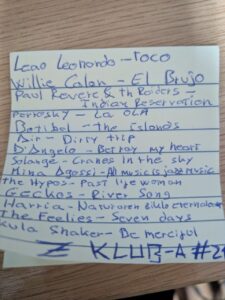 Leao Leonardo - Toco
Willie Colon - El Brujo
Paul Revere & th Raiders -
Indian Reservation
- La OLA
- The islands
Air - Dirty trip
D'Angelo - Betray my heart
Solange - Cranes In the sky
Mina Agossi - All music is jazz music
the Hypos - Past life woman
Geckos - River Song
Harria - Naturaren
The Feelies - Seven days
Kula Shaker - Be merciful
KLUB-A #2